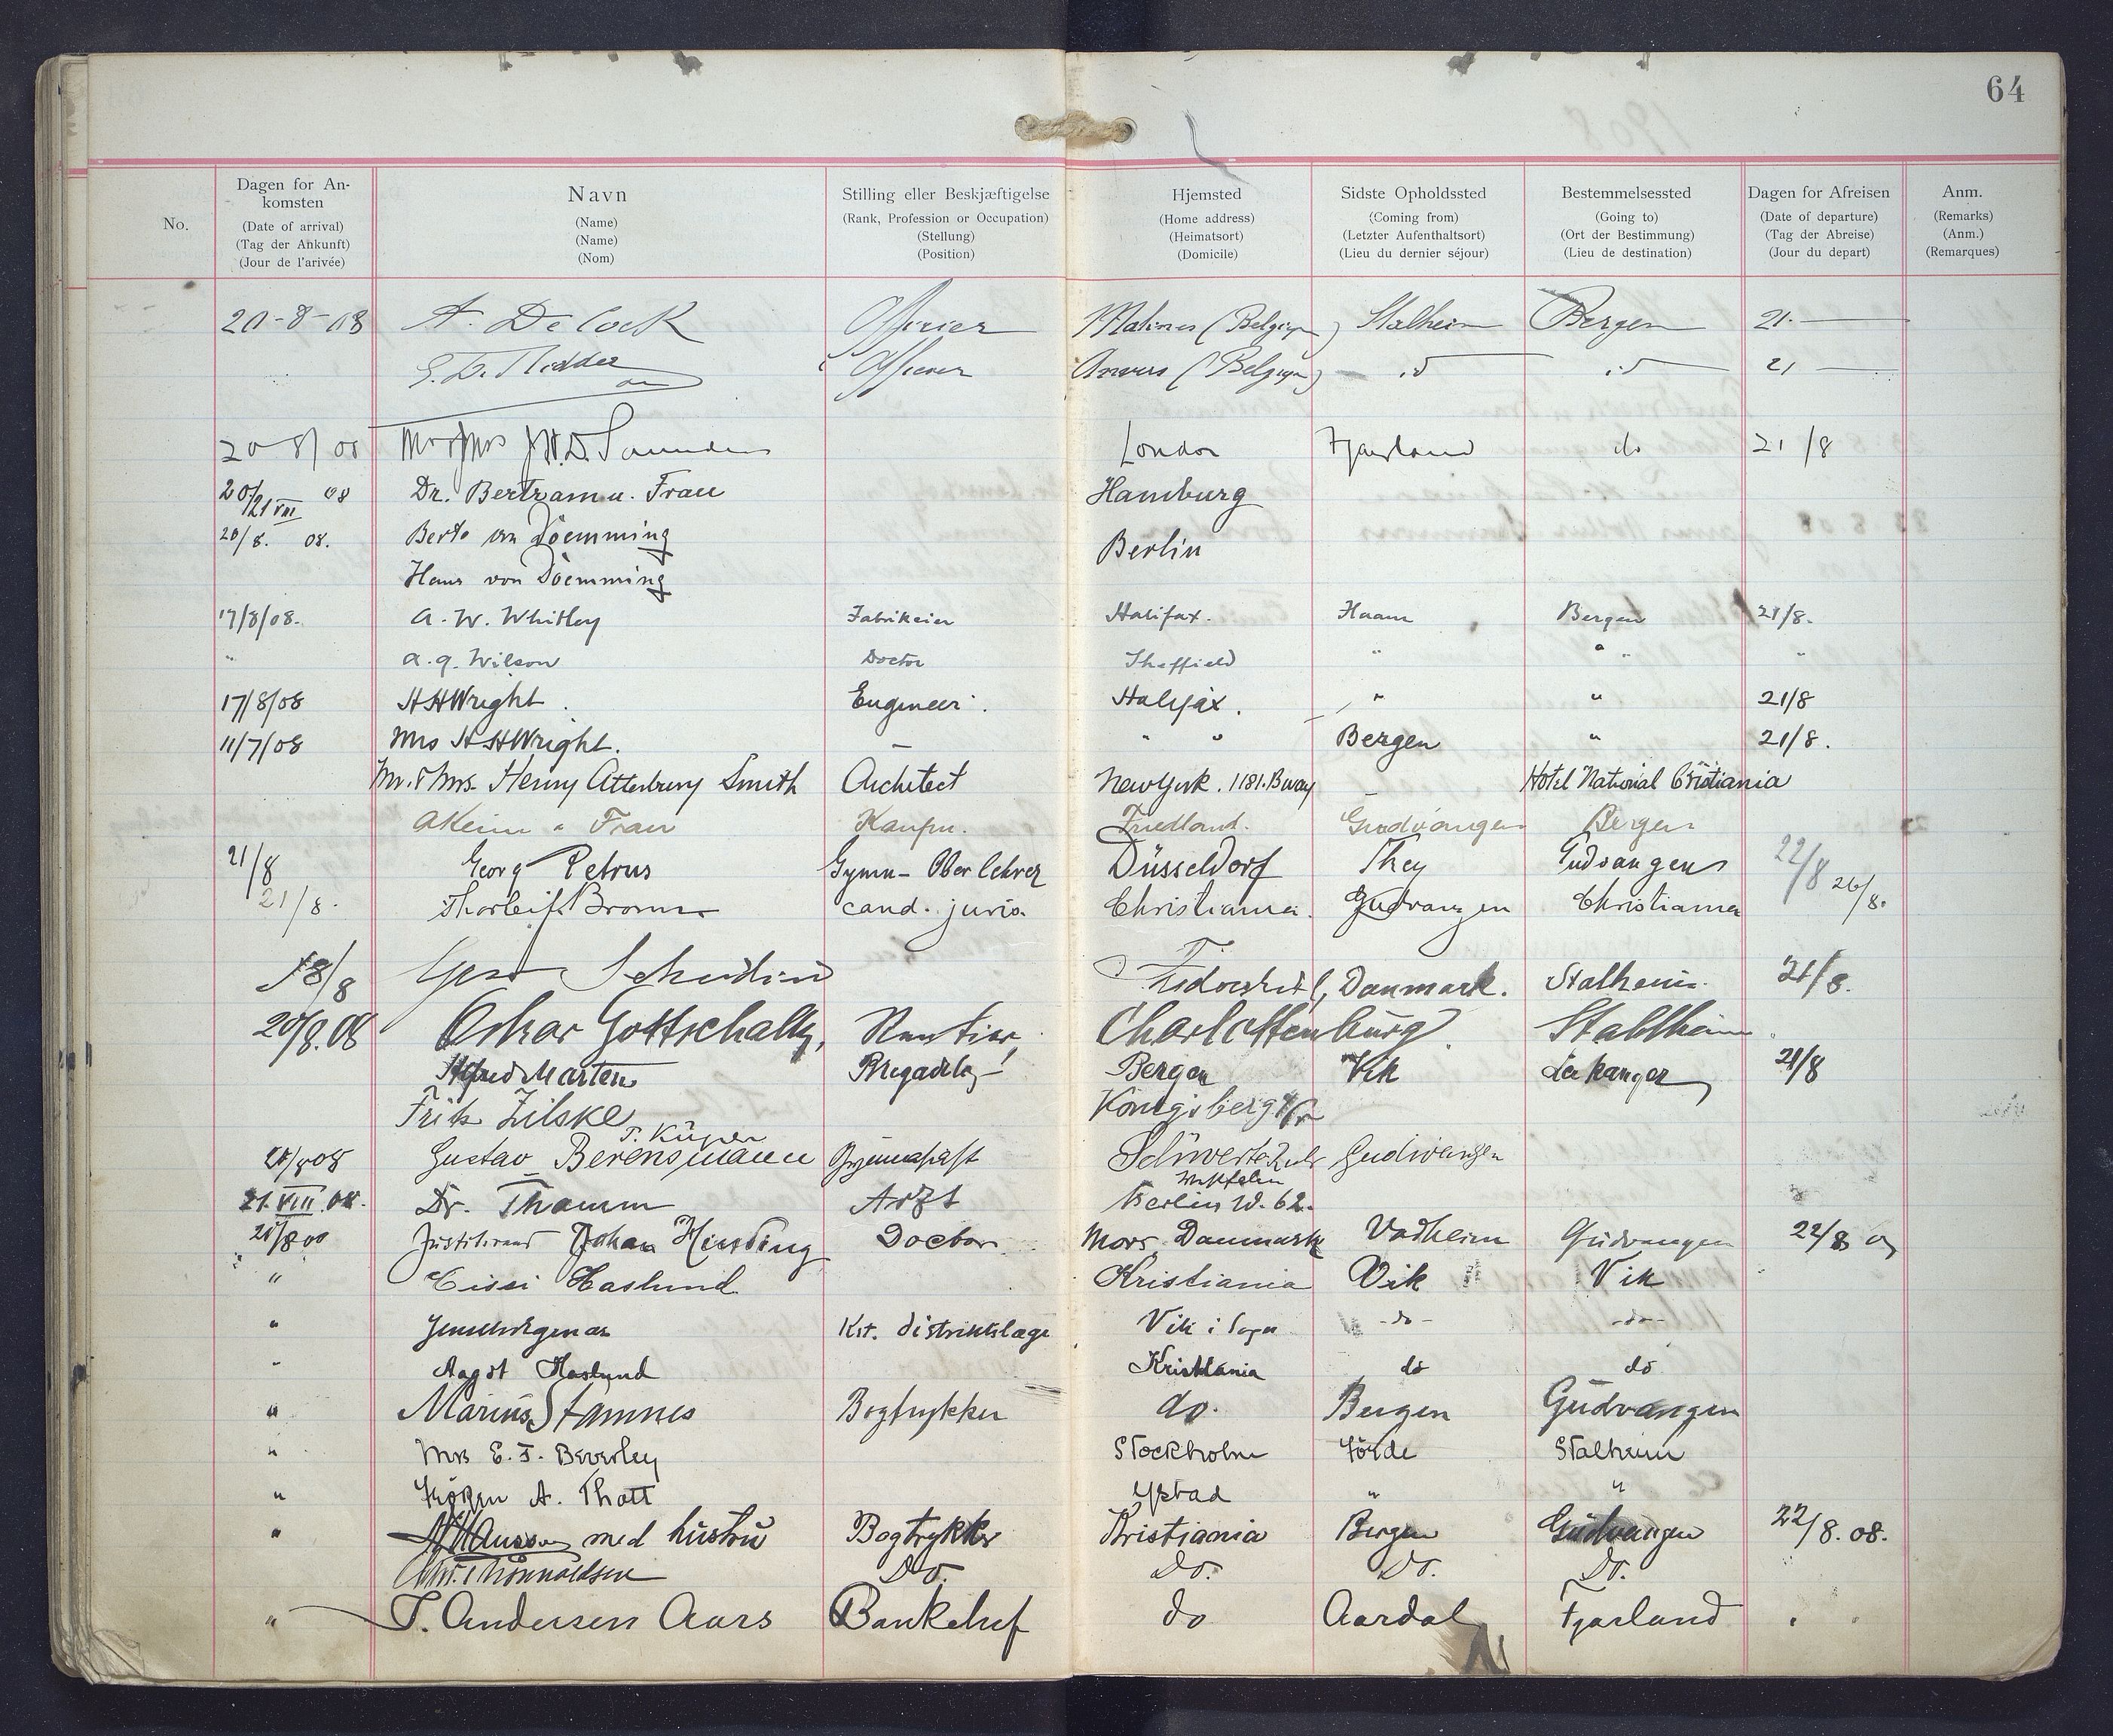 64
No.
Dagen for Ankomsten (Date of arrival) (Tag der Ankunft) (Jour de l'arivée)
Navn (Name) (Name) (Nom)
Stilling eller Beskjæftigelse (Rank, Profession or Occupation) (Stellung) (Position)
Hjemsted (Home address) (Heimatsort) (Domicile)
Sidste Opholdssted (Coming from) (Letzter Aufenthaltsort) (Lieu du dernier séjour)
Bestemmelsessted (Going to) (Ort der Bestimmung) (Lieu de destination)
Dagen for Afreisen (Date of departure) (Tag der Abreise) (Jour du depart)
Anm. (Remarks) (Anm.) (Remarques)
20-8-08 A. De Cock Officier Malines (Belgique) Stalheim Bergen 21.
E. De Ridder Officier Anvers (Belgique) id id 21
20 8/08 Mr & Mrs Saunders London Fjaerland do 21/8
20/21 VIII 08 Dr. Bertram u. Frau Hamburg
20/8. 08. von Doemming Berlin
Hans von Doemming
17/8/08. A. W. Whitley Halifax. Bergen 21/8.
" A. G. Wilson Doctor Sheffield " " "
17/8/08 H H Wright. Engineer. Halifax. " " 21/8
11/7/08 Mrs H H Wright. – " " Bergen " 21/8.
Mr. & Mrs. Henry Atterbury Smith Architect New York. 1181. Bway Hotel National Cristiania
Frau Kaufm. Friedland. Gudvangen Bergen
21/8 Georg Petrus Gymn- Oberlehrer Düsseldorf Gudvangen 22/8
21/8. Thorleif cand. juris. Christiania. Gudvangen Christiania 26/8.
18/8 Danmark. Stalheim. 21/8.
20/8.08 Oskar Gottschalk, Rentier, Charlottenburg. Stahlheim.
Alfred Martens Bergen Vik Leikanger 21/8
Fritz Zilske Königsberg i/Pr
Gustav Berensmann Schwerte Ruhr Westfalen Gudvangen
21. VIII. 08. Dr. Thamm Arzt Berlin W. 62.
Johan Doctor Mors Danmark Vadheim Gudvangen 22/8
" Cissi Haslund Kristiania Vik Vik
" Kst. distriktslæge Vik i Sogn -do- -do-
" Aagot Haslund Kristiania do do
" Marius Stamnes Bogtrykker do. Bergen Gudvangen
" Mrs E. F. Beverley Stockholm Förde Stalheim
" A. Thott Ystad " "
" med hustru Bogtrykker Kristiania Bergen Gudvangen 22/8. 08.
Do. Do. Do. Do.
" T. Andersen Aars Bankchef do Aardal Fjærland "